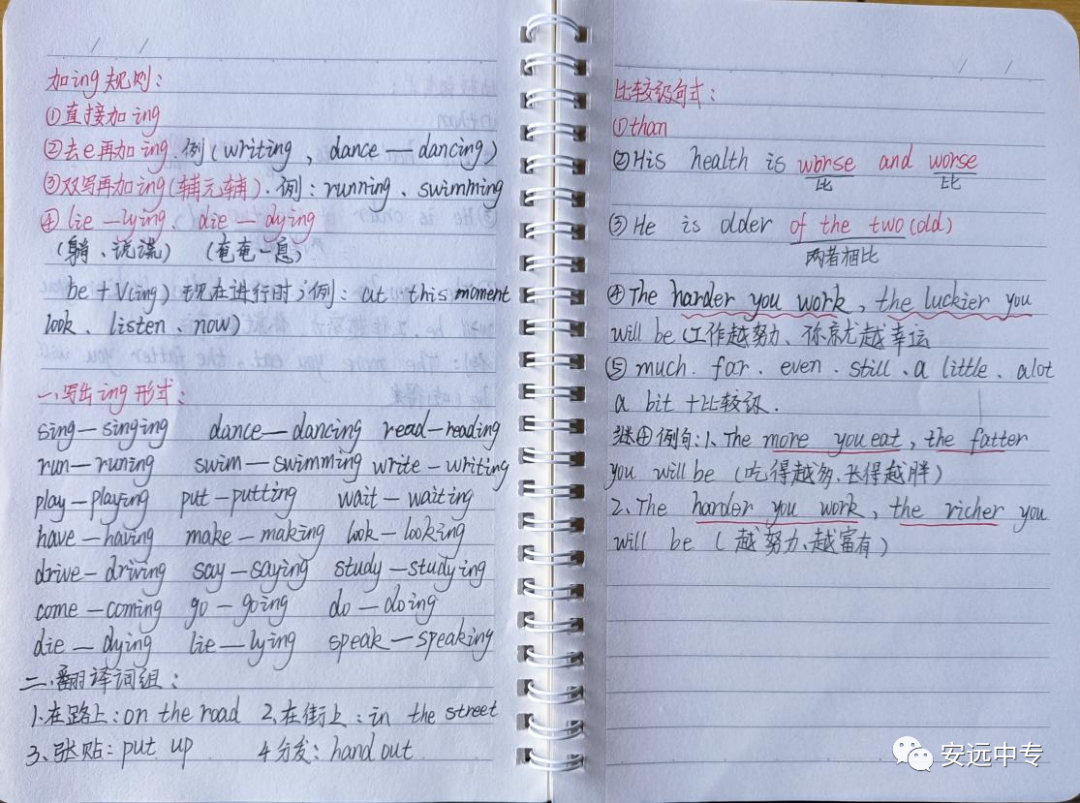 加ing规则:
①直接加ing
②去e再加ing.例(writing, dance—dancing)
③双写再加ing(辅元辅).例:running、swimming
④lie—lying、die—dying
(躺、说谎) (奄奄一息)
be+V(ing)现在进行时;例:at this moment
look、listen、now)
一、写出ing形式:
sing—singing dance—dancing read—reading
run—runing swim—swimming write—writing
play—playing put—putting wait—waiting
have—having make—making look—looking
drive—driving say—saying study—studying
come—coming go—going do—doing
die—dying lie—lying speak—speaking
二、翻译词组:
1.在路上:on the road 2、在街上:in the street
3、张贴:put up 4分发:hand out
比较级句式:
①than
②His health is worse and worse
比 比
③He is older of the two(old)
两者相比
④The harder you work, the luckier you
will be(工作越努力、你就越幸运
⑤much.far.even.still、a little、alot
a bit+比较级.
继④例句:1、The more you eat, the fatter
you will be(吃得越多,长得越胖)
2、The harder you work, the richer you
will be(越努力、越富有)
安远中专